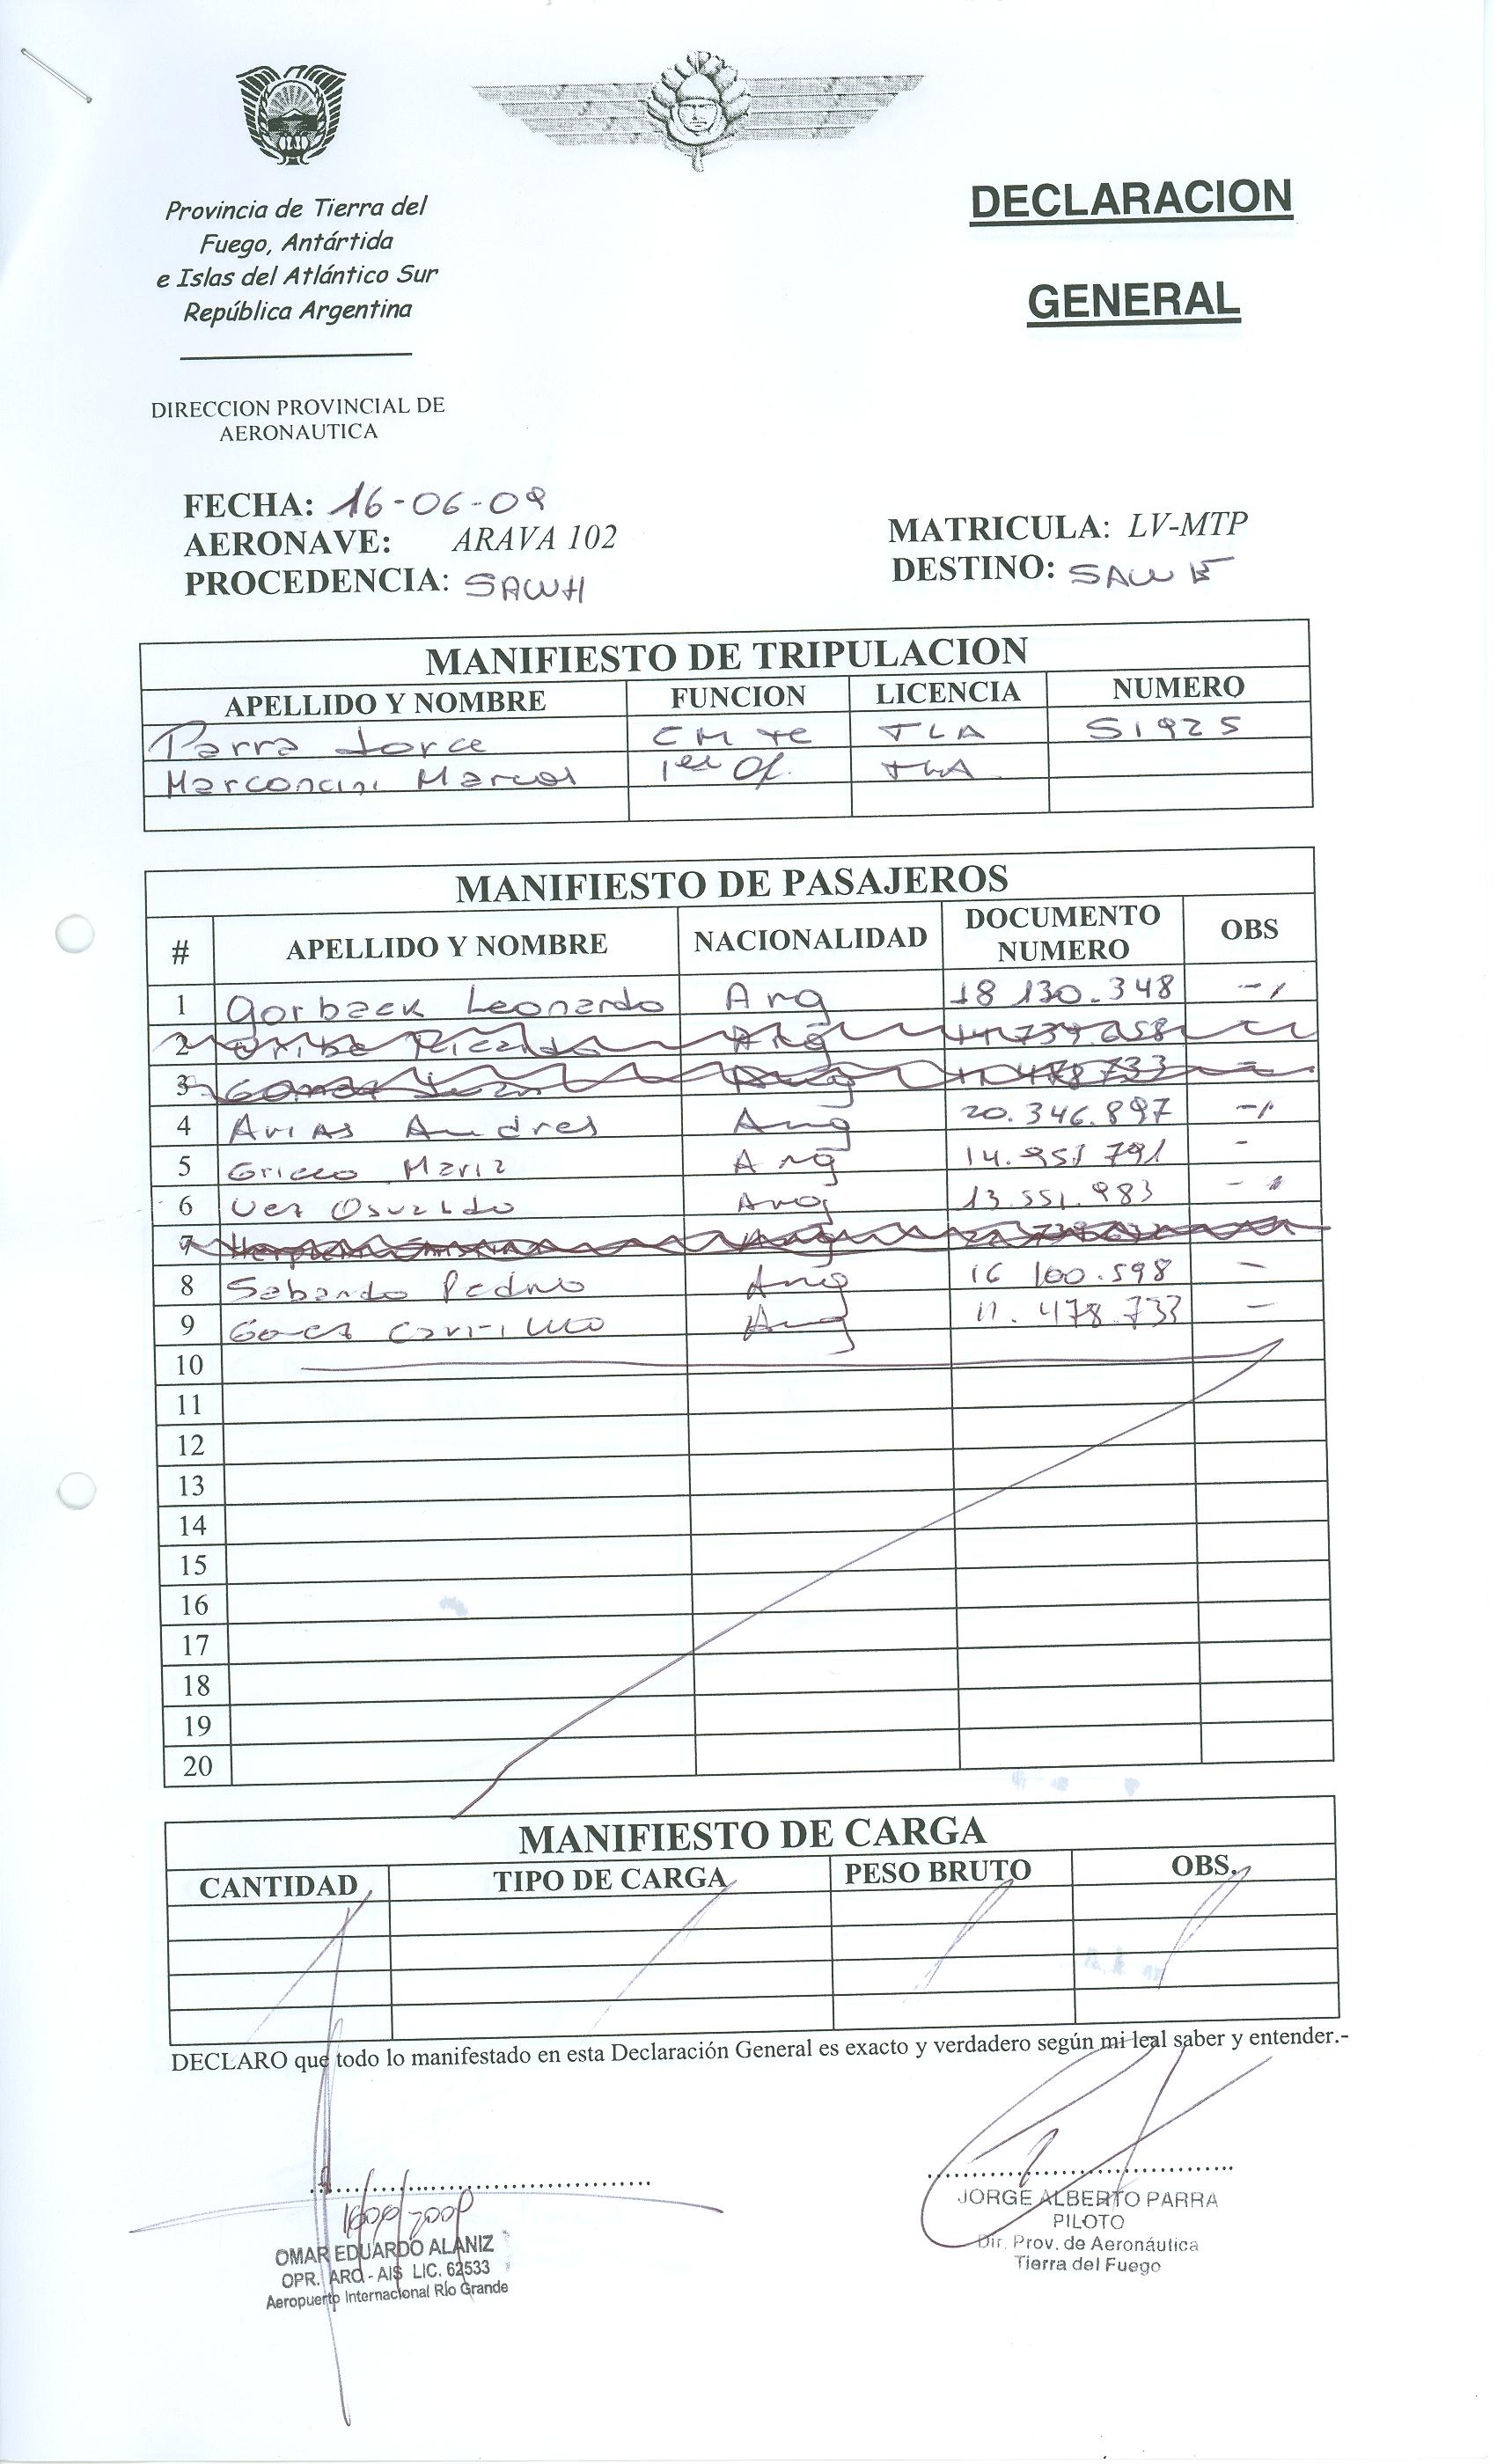 Provincia de Tierra del
Fuego, Antártida
e Islas del Atlántico Sur
República Argentina
DECLARACION
GENERAL
DIRECCION PROVINCIAL DE
AERONAUTICA
FECHA: 16-06-09
AERONAVE: ARAVA 102 MATRICULA: LV-MTP
PROCEDENCIA: SAWH DESTINO: SAWE
MANIFIESTO DE TRIPULACION
APELLIDO Y NOMBRE FUNCION LICENCIA NUMERO
Parra Jorge CMTE TLA 51925
Marconcini Marcos 1er Of. TLA
MANIFIESTO DE PASAJEROS
# APELLIDO Y NOMBRE NACIONALIDAD DOCUMENTO NUMERO OBS
1 Gorback Leonardo Arg 18 130.348 -
2 Uribe Ricardo Arg
3 Gomez Arg 11.478733 -
4 Arias Andres Arg 20.346.897 -
5 Grieco Maria Arg 14.951 791 -
6 Osvaldo Arg 13.551.983 -
7
8 Sabando Pedro Arg 16 100.598 -
9 Gomez Carrillo Arg 11.478.733 -
10
11
12
13
14
15
16
17
18
19
20
MANIFIESTO DE CARGA
CANTIDAD TIPO DE CARGA PESO BRUTO OBS.
DECLARO que todo lo manifestado en esta Declaración General es exacto y verdadero según mi leal saber y entender.-
OMAR EDUARDO ALANIZ
OPR. ARO - AIS LIC. 62533
Aeropuerto Internacional Río Grande
JORGE ALBERTO PARRA
PILOTO
Dir. Prov. de Aeronáutica
Tierra del Fuego